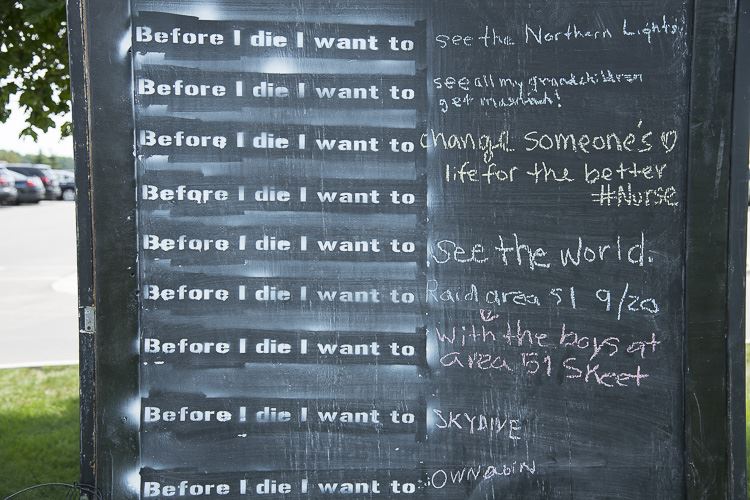 Before I die I want to see the Northern Lights
Before I die I want to see all my grandchildren
get married!
Before I die I want to change someone's ♡
life for the better
Before I die I want to #Nurse
Before I die I want to see the world.
Before I die I want to Raid area 51 9/20
Before I die I want to with the boys at
area 51 Skeet
Before I die I want to SKYDIVE
Before I die I want to OWN